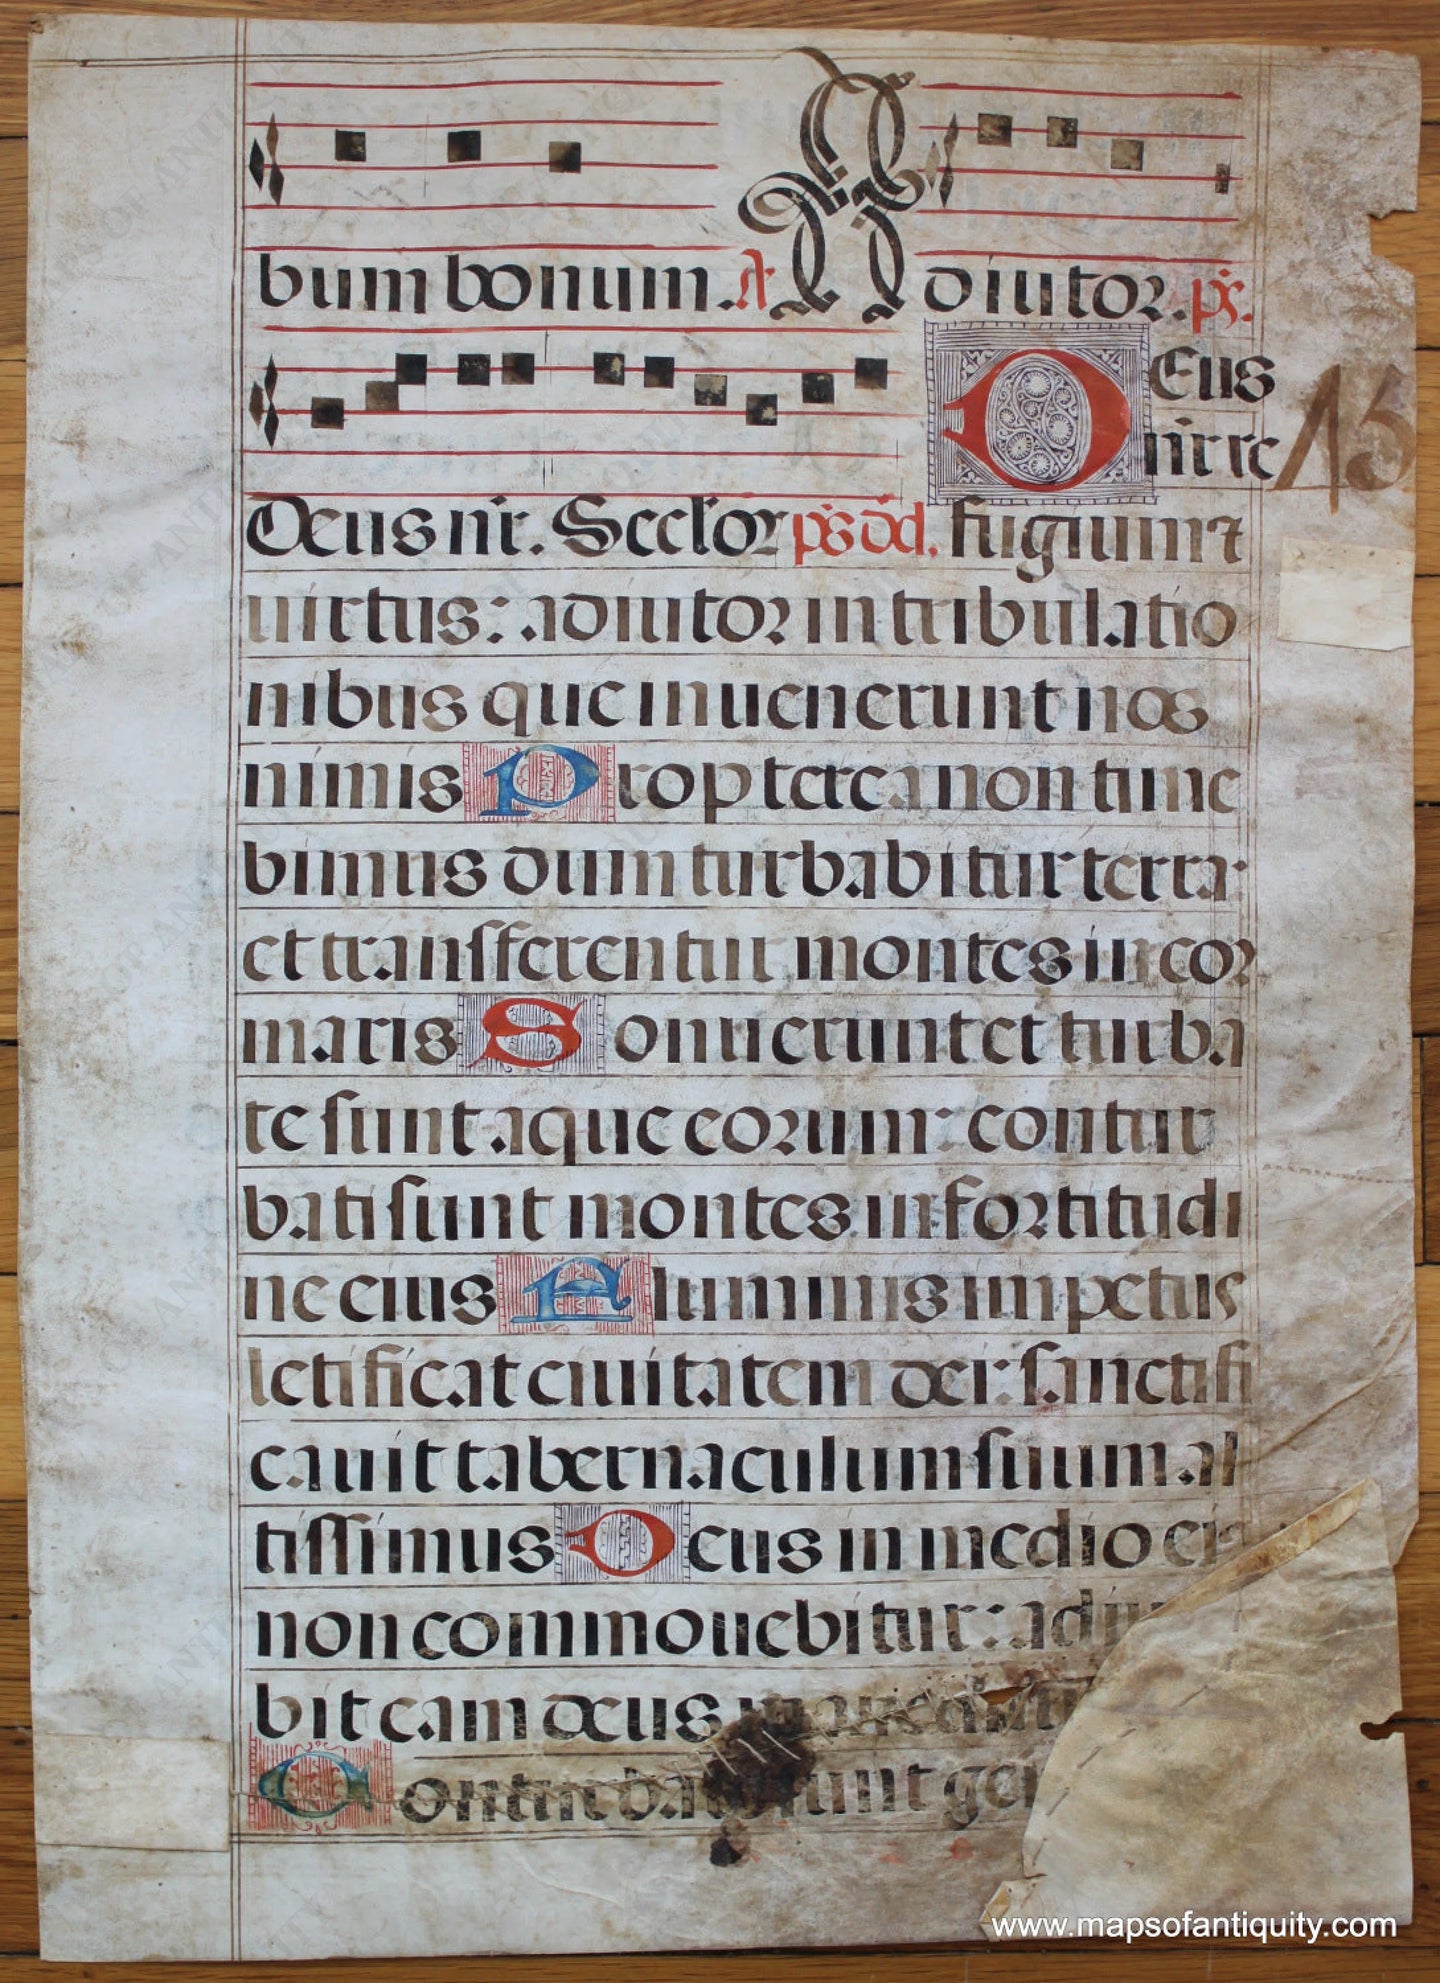 bum bonum. A Adiutor. ps.
Deus
nr̄ re
Deus nr̄. Seclor ps dd. fugium ⁊
uirtus: adiutor in tribulatio
nibus que inuenerunt nos
nimis Propterea non time
bimus dum turbabitur terra:
et transferentur montes in cor
maris Sonuerunt et turba
te sunt aque eorum: contur
bati sunt montes in fortitudi
ne eius Fluminis impetus
letificat ciuitatem dei: sanctifi
cauit tabernaculum suum al
tissimus Deus in medio ei
non commouebitur: adiu
bit eam deus mane dilu
Conturbate sunt gen
15
www.mapsofantiquity.com